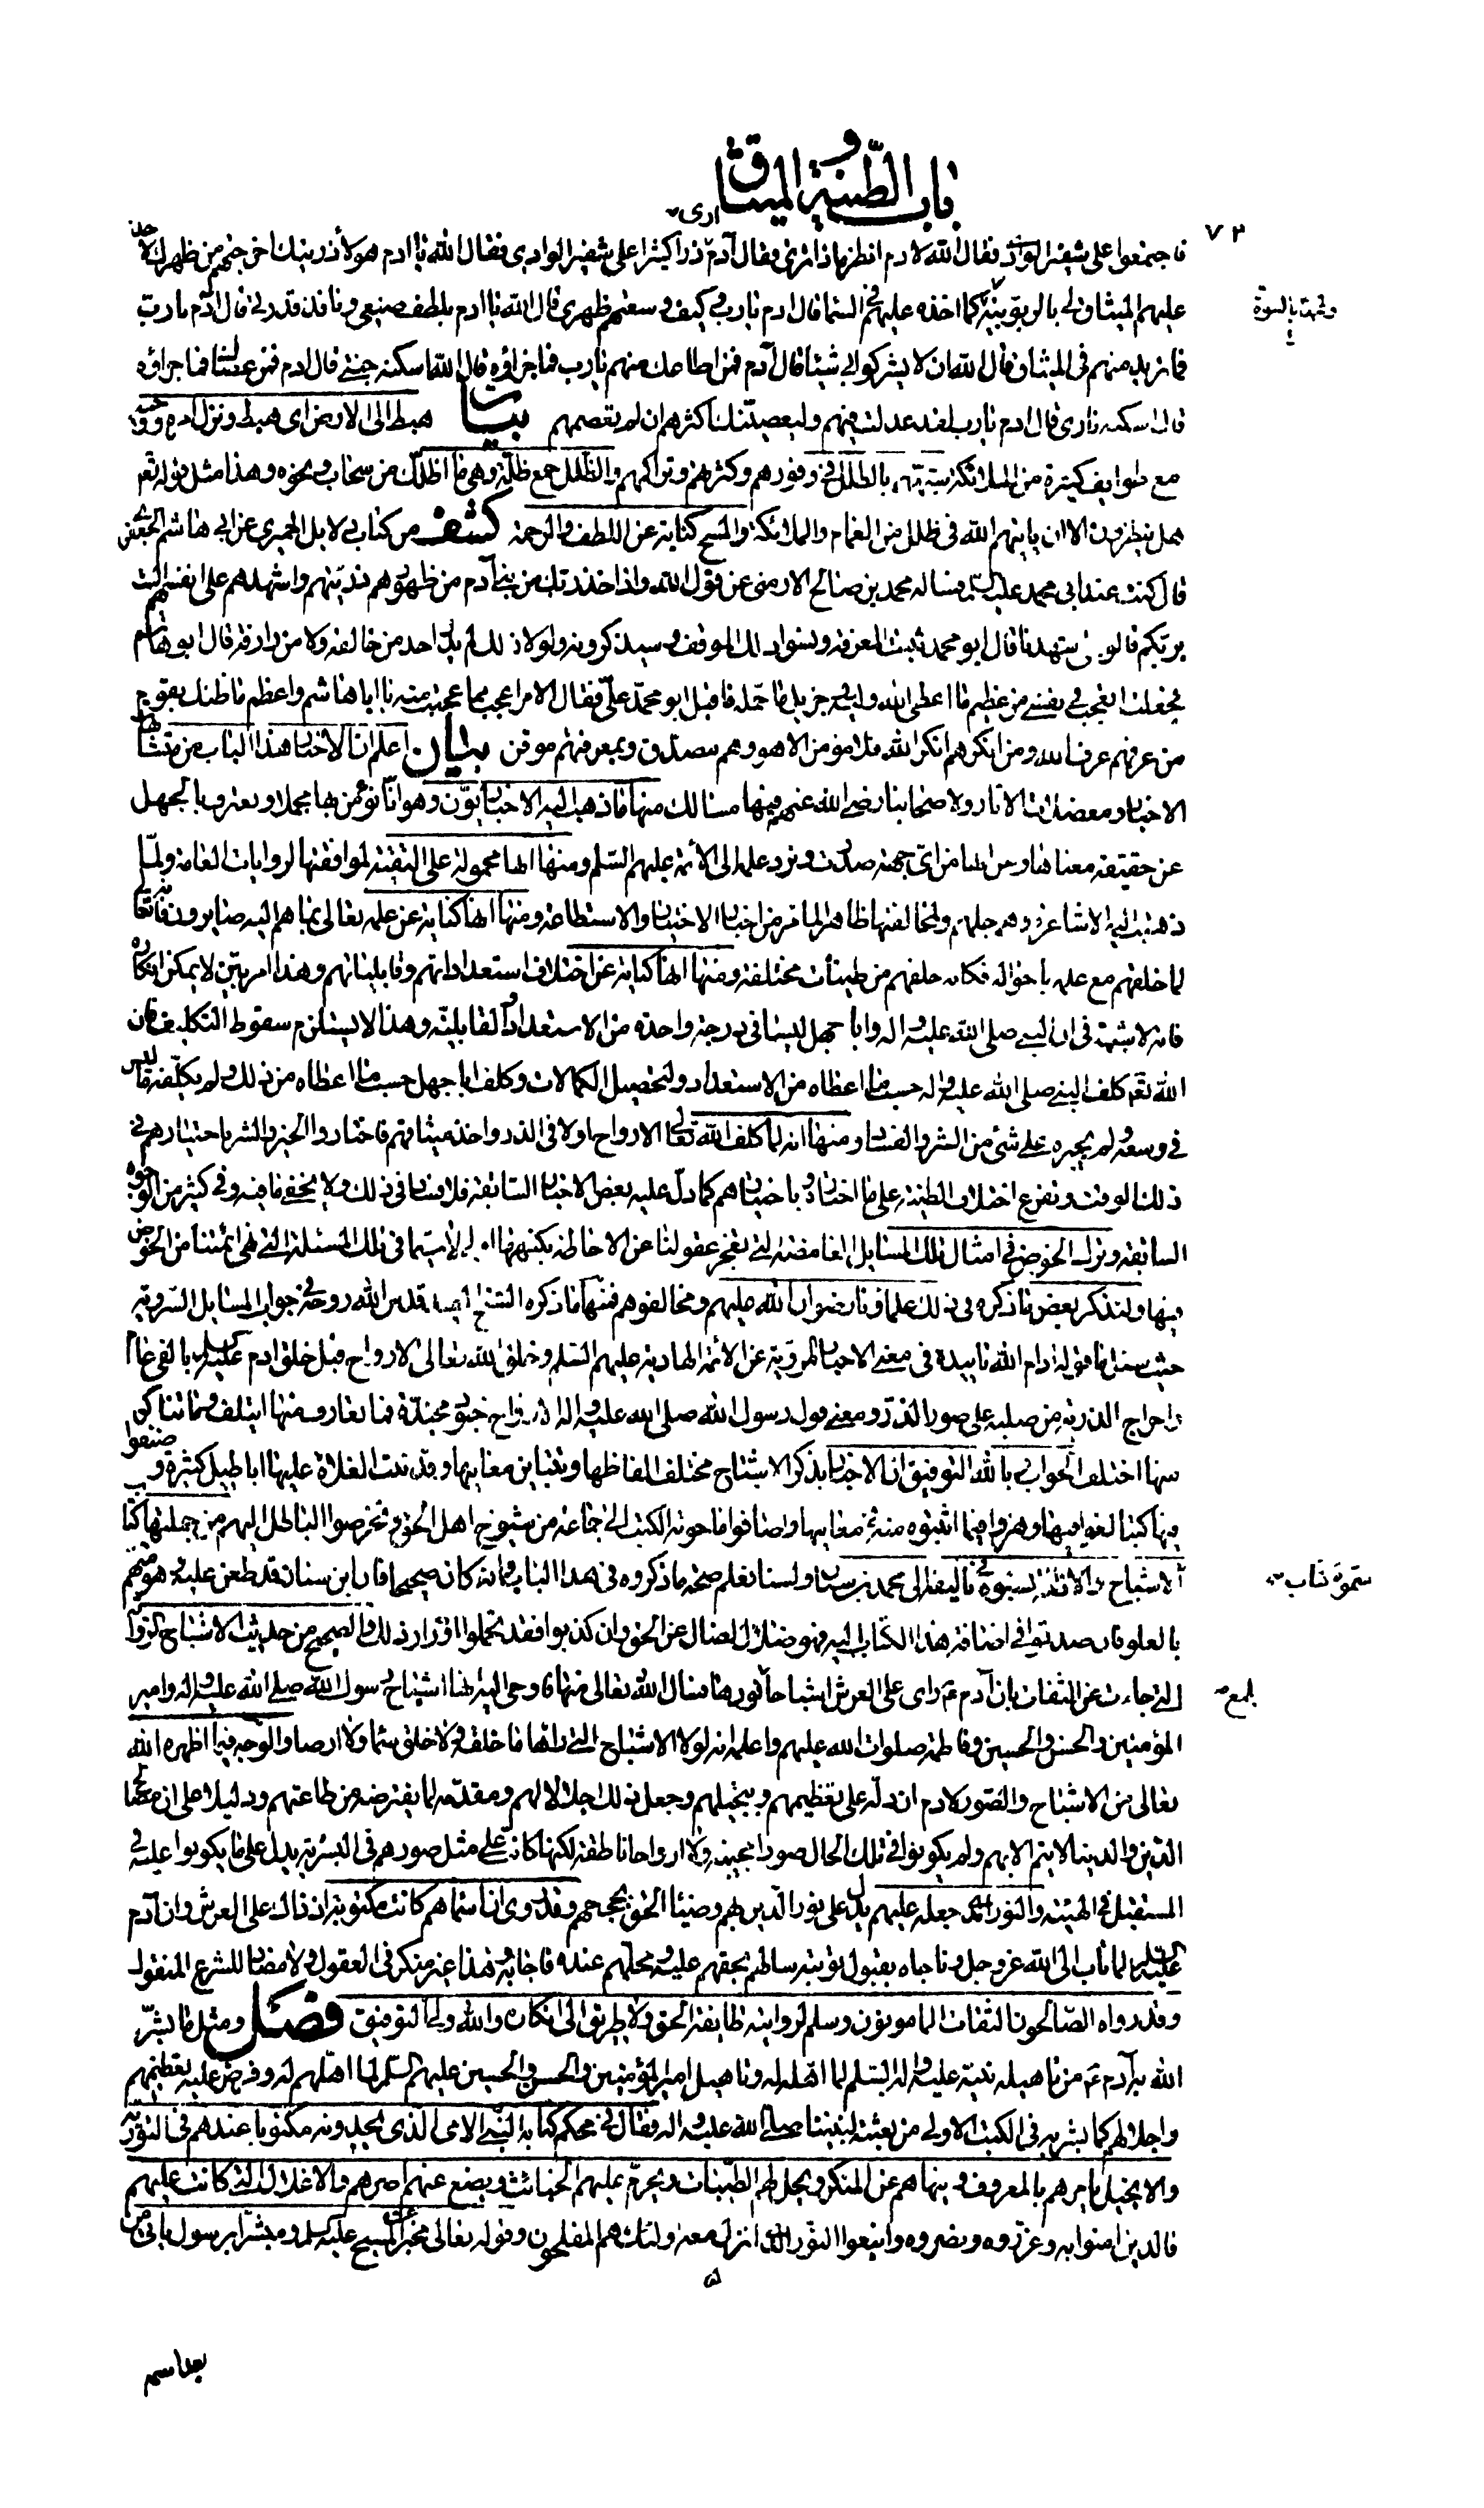 باب الطينة و الميثاق
٧٣
ارى
فاجتمعوا على شفير الوادى فقال الله لآدم انظر ماذا ترى فقال آدم ذرا كثيرا على شفير الوادى فقال الله يا ادم هولاء ذريتك اخرجتهم من ظهرك لآخذ
عليهم الميثاق لى بالربوبية كما اخذه عليهم فى السما قال ادم يا رب و كيف وسعتهم ظهرى قال الله يا ادم بلطف صنيعى و نافذ قدرتى قال آدم يا رب
ولمحمد بالنبوة
فما تريد منهم فى الميثاق قال الله ان لا يشركوا بى شيئا قال آدم فمن اطاعك منهم يا رب فما جزاؤه قال الله اسكنه جنتى قال ادم فمن عصاك فما جزاؤه
قال اسكنه نارى قال ادم يا رب لقد عدلت فيهم وليعصينك اكثرهم ان لم تعصمهم بيان هبط الى الارض اى هبط ونزل ادم و
مع طوايف كثيرة من الملائكة شبههم بالظلل فى وفورهم وكثرتهم وتراكمهم والظلل جمع ظلة وهى ما اظلك من سحاب و نحوه وهذا مثل قوله تعالى
هل ينظرون الا ان ياتيهم الله فى ظلل من الغمام والملائكة والمسح كناية عن اللطف والرحمة كشف من كتاب دلايل الحميرى عن ابى هاشم الجعفرى
قال كنت عند ابى محمد عليه السلام فساله محمد بن صالح الارمنى عن قول الله واذ اخذ ربك من بنى آدم من ظهورهم ذريتهم واشهدهم على انفسهم الست
بربكم قالوا بلى شهدنا قال ابو محمد ثبتت المعرفة ونسوا ذلك الموقف وسيذكرونه ولولا ذلك لم يدر احد من خالقه ولا من رازقه قال ابو هاشم
فجعلت اتعجب فى نفسى من عظيم ما اعطى الله وليه و جزيل ما حمله فاقبل ابو محمد على فقال الامر اعجب مما عجبت منه يا ابا هاشم واعظم ما ظنك بقوم
من عرفهم عرف الله ومن انكرهم انكر الله فلا مؤمن الا هو وهم مصدق وبمعرفتهم موقن بيان اعلم ان الاخبار هذا الباب من متشابهات
الاخبار ومعضلات الاثار ولاصحابنا رضى الله عنهم فيها مسالك منها ما ذهب اليه الاخباريون وهو انا نؤمن بها مجملا ونعترف بالجهل
عن حقيقة معناها وعن انها من اى جهة صدرت ونرد علمها الى الائمة عليهم السلم ومنها انها محمولة على التقية لموافقتها لروايات العامة ولما
ذهبت اليه الاشاعرة وهم جلهم ولمخالفتها ظاهرا لما مر من اخبار الاختيار والاستطاعة ومنها انها كناية عن علمه تعالى بما هم اليه صايرون فانه تعالى
لما خلقهم مع علمه باحوالهم فكانه خلقهم من طينات مختلفة ومنها انها كناية عن اختلاف استعداداتهم وقابلياتهم وهذا امر بين لا يمكن انكاره
فانه لا شبهة فى ان النبى صلى الله عليه و اله وابا جهل ليسا فى درجة واحدة من الاستعداد والقابلية وهذا لا يستلزم سقوط التكليف فان
الله تعالى كلف النبى صلى الله عليه و اله حسب ما اعطاه من الاستعداد و لتحصيل الكمالات وكلف ابا جهل حسب ما اعطاه من ذلك ولم يكلفه ما ليس
فى وسعه و لم يجبره على شئ من الشر والفساد ومنها انه لما كلف الله تعالى الارواح اولا فى الذر واخذ ميثاقهم فاختاروا الخير والشر باختيارهم فى
ذلك الوقت وتفرع اختلاف الطينة على ما اختاروه باختيارهم كما دل عليه بعض الاخبار السابقة فلا فساد فى ذلك ولا يخفى ما فيه وفى كثير من الوجوه
السابقة وترك الخوض فى امثال تلك المسايل الغامضة التى تعجز عقولنا عن الاحاطة بكنهها اولى لا سيما فى تلك المسئلة التى نهى ائمتنا من الخوض
فيها ولنذكر بعض ما ذكره فى ذلك علماؤنا رضوان الله عليهم ومخالفوهم فمنها ما ذكره الشيخ المفيد قدس الله روحه فى جواب المسايل السروية
حيث سئل ما قوله ادام الله تاييده فى معنى الاخبار المروية عن الائمة الهادية عليهم السلم و خلق الله تعالى الارواح قبل خلق ادم عليه السلم بالفى عام
واخراج الذرية من صلبه على صور الذر ومعنى قول رسول الله صلى الله عليه و اله الارواح جنود مجندة فما تعارف منها ايتلف وما تناكر
منها اختلف الجواب و بالله التوفيق ان الاخبار بذكر الاشباح مختلف الفاظها وتتباين معانيها وقد بنت الغلاة عليها اباطيل كثيرة وصنفوا
فيها كتبا لغوا فيها وهزوا فيما اثبتوه منه فى معانيها واضافوا ما حوته الكتب الى جماعة من شيوخ اهل الحق وتخرصوا الباطل اليهم من جملتها كتاب
سموه كتاب
الاشباح والاظلة نسبوه فى تاليفه الى محمد بن سنان ولسنا نعلم صحة ما ذكروه فى هذا الباب عنه وان كان صحيحا فان ابن سنان قد طعن عليه وهو متهم
بالغلو فان صدقوا فى اضافة هذا الكتاب اليه فهو ضلال لضال عن الحق وان كذبوا فقد تحملوا اوزار ذلك والصحيح من حديث الاشباح الرواية
التى جاءت عن الثقات بان آدم راى على العرش اشباحا يلمع نورها فسال الله تعالى عنها فاوحى اليه انها اشباح رسول الله صلى الله عليه و اله وامير
يلمع
المؤمنين والحسن والحسين وفاطمة صلوات الله عليهم واعلمه انه لولا الاشباح التى راها ما خلقه ولا خلق سماء ولا ارضا والوجه فيما اظهره الله
تعالى من الاشباح والصور لادم ان دله على تعظيمهم وتبجيلهم وجعل ذلك اجلالا لهم ومقدمة لما يفترضه من طاعتهم ودليلا على ان مصالح
الدين والدنيا لا تتم الا بهم ولم يكونوا فى تلك الحال صورا مجيبة ولا ارواحا ناطقة لكنها كانت على مثل صورهم فى البشرية يدل على ما يكونوا عليه فى
المستقبل فى الهيئة والنور الذى جعله عليهم يدل على نور الدين بهم وضياء الحق بحججهم وقد روى ان اسماءهم كانت مكتوبة اذ ذاك على العرش وان آدم
عليه السلم لما تاب الى الله عز وجل وناجاه بقبول توبته ساله بحقهم عليه و محلهم عنده فاجابه و هذا غير منكر فى العقول ولا مضاد للشرع المنقول
وقد رواه الصالحون الثقات المامونون وسلم لروايته طايفة الحق ولا طريق الى انكاره والله ولى التوفيق فصل ومثل ما بشر
الله به آدم من تاهيله نبيه عليه و اله السلم لما اهله له وتاهيل امير المؤمنين والحسن والحسين عليهم السلم لما اهلهم له وفرض عليه تعظيمهم
واجلالهم كما بشر به فى الكتب الاولى من بعثته لنبينا صلى الله عليه و اله فقال فى محكم كتابه النبى الامى الذى يجدونه مكتوبا عندهم فى التورية
والانجيل يامرهم بالمعروف و ينهاهم عن المنكر ويحل لهم الطيبات ويحرم عليهم الخبائث ويضع عنهم اصرهم والاغلال التى كانت عليهم
فالذين امنوا به وعزروه ونصروه واتبعوا النور الذى انزل معه اولئك هم المفلحون وقوله تعالى مخبرا عن المسيح عليه السلم ومبشرا برسول ياتى من
بعد اسمه